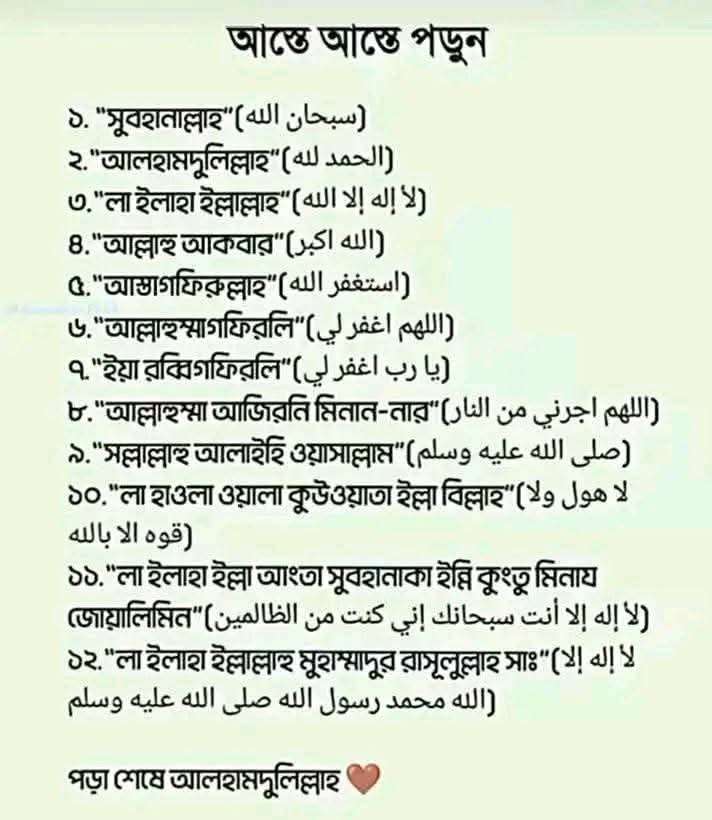 আস্তে আস্তে পড়ুন
১. "সুবহানাল্লাহ"(سبحان الله)
২."আলহামদুলিল্লাহ"(الحمد لله)
৩."লা ইলাহা ইল্লাল্লাহ"(لأ إله إلا الله)
৪."আল্লাহু আকবার"(الله اكبر)
৫."আস্তাগফিরুল্লাহ"(استغفر الله)
৬."আল্লাহুম্মাগফিরলি"(اللهم اغفر لي)
৭."ইয়া রব্বিগফিরলি"(يا رب اغفر لي)
৮."আল্লাহুম্মা আজিরনি মিনান-নার"(اللهم اجرني من النار)
৯."সল্লাল্লাহু আলাইহি ওয়াসাল্লাম"(صلى الله عليه وسلم)
১০."লা হাওলা ওয়ালা কুউওয়াতা ইল্লা বিল্লাহ"(لا هول ولا
قوه الا بالله)
১১."লা ইলাহা ইল্লা আংতা সুবহানাকা ইন্নি কুংতু মিনায
জোয়ালিমিন"(لأ إله إلا أنت سبحانك إني كنت من الظالمين)
১২."লা ইলাহা ইল্লাল্লাহু মুহাম্মাদুর রাসূলুল্লাহ সাঃ"(لأ إله إلا
الله محمد رسول الله صلى الله عليه وسلم)
পড়া শেষে আলহামদুলিল্লাহ ❤️